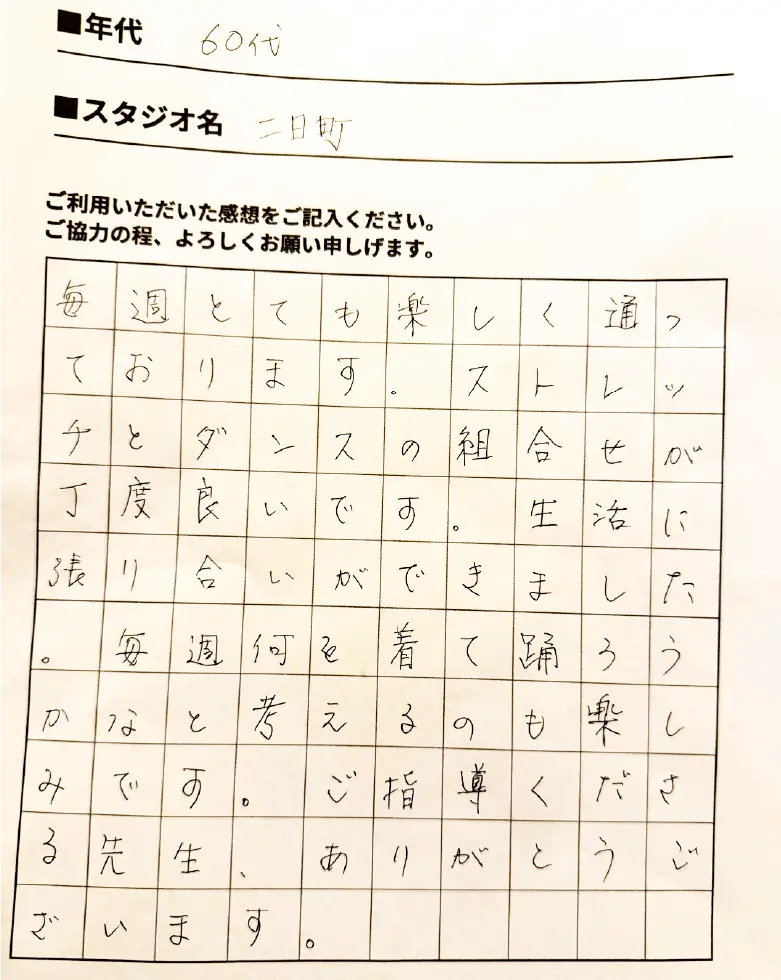 ■年代 60代
■スタジオ名 二日町
ご利用いただいた感想をご記入ください。
ご協力の程、よろしくお願い申しげます。
毎週とても楽しく通っ
ております。ストレッ
チとダンスの組合せが
丁度良いです。生活に
張り合いができました
。毎週何を着て踊ろう
かなと考えるのも楽し
みです。ご指導くださ
る先生、ありがとうご
ざいます。